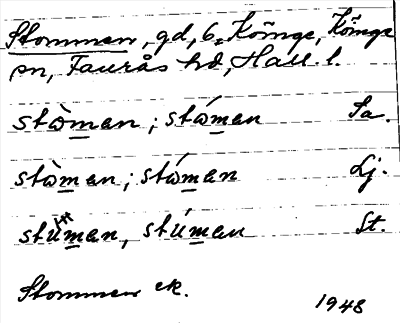 Stommen, gd, 6, Köinge, Köinge
sn, Faurås hd, Hall. l.
stòman; stóman Sa.
stòman; stóman Lj.
stùman, stúman St.
Stommen ek.
1948